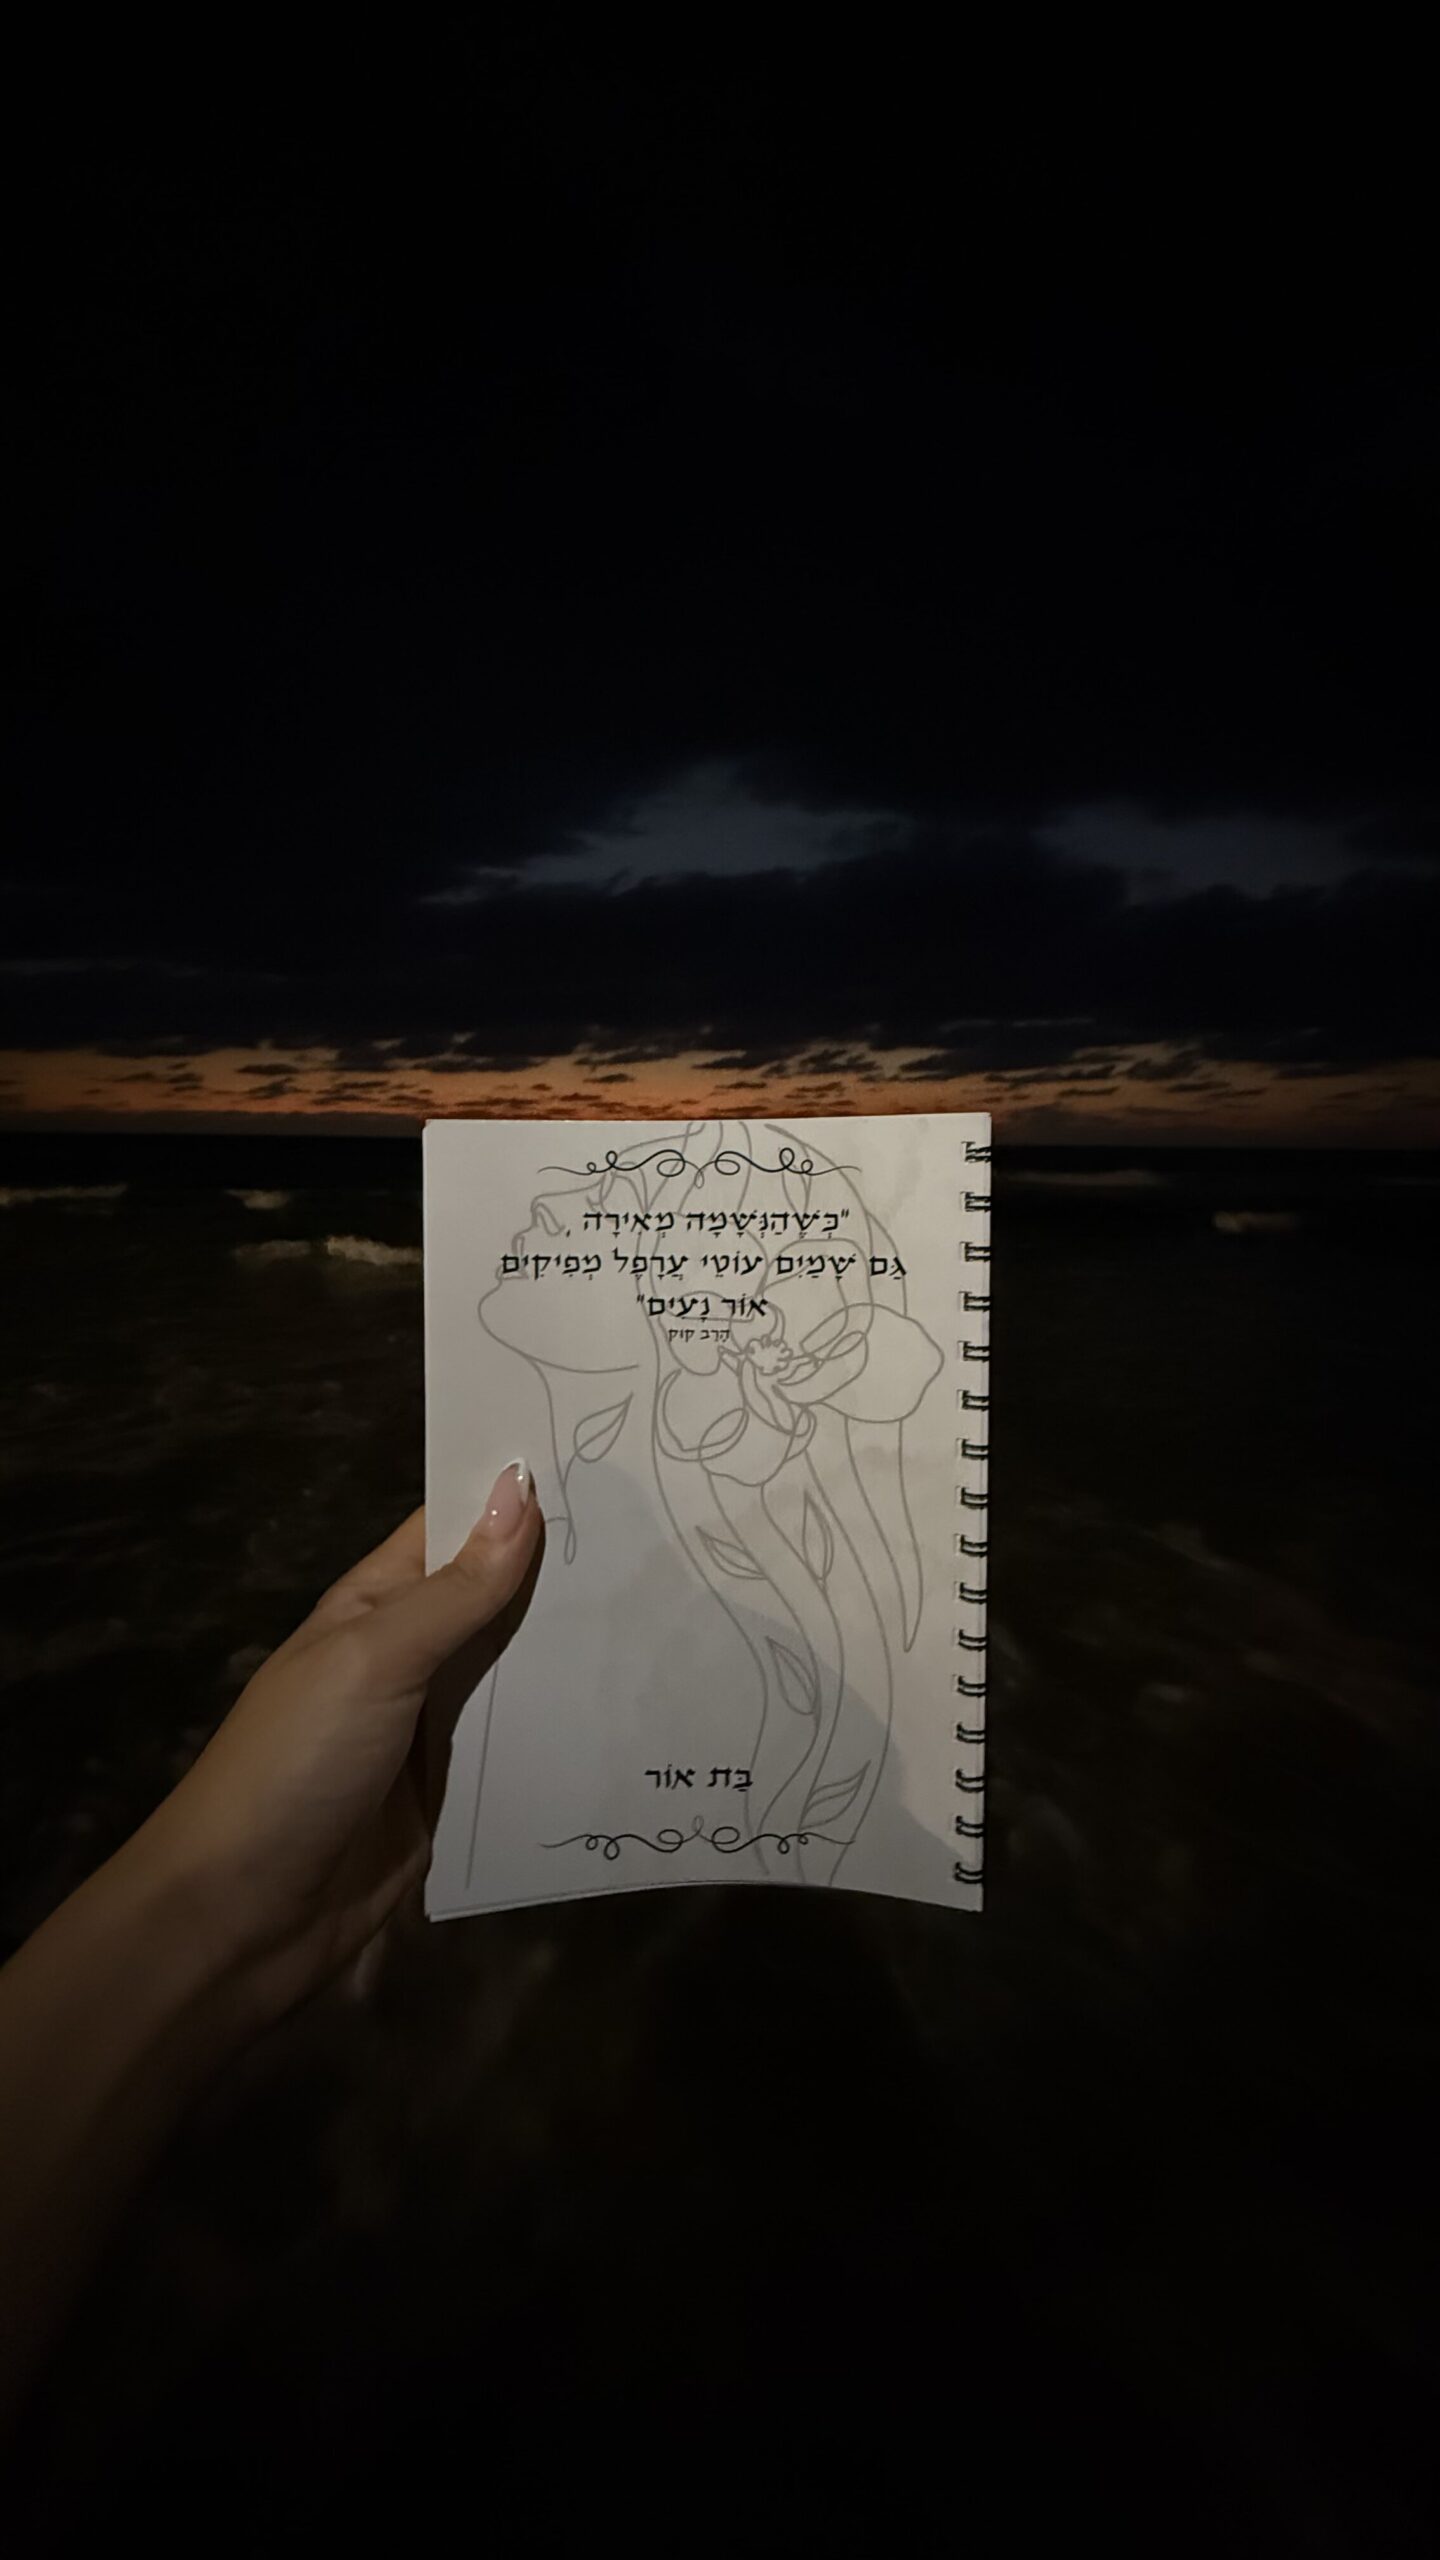 "כְּשֶׁהַנְּשָׁמָה מְאִירָה ,
גַּם שָׁמַיִם עוֹטֵי עֲרָפֶל מְפִיקִים
אוֹר נָעִים"
הרב קוק
בַּת אוֹר